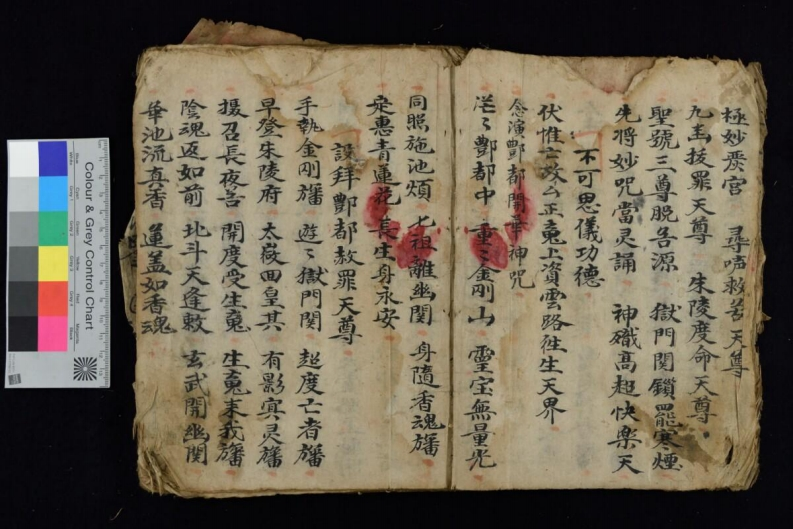 極妙炁宮 尋声救苦天尊
九玉拔罪天尊 朱陵度命天尊
聖號三尊脱苦源 獄門関鎖罷寒煙
先将妙咒當灵誦 神職高超快樂天
不可思儀功德
伏惟亡故厶正䰟上資雲路徃生天界
念演酆都開華神咒
茫〻酆都中 重〻金剛山 霊宝無量光
同照施池煩 七祖離幽関 身随香魂旛
定惠青蓮花 長生身永安
設拜酆都赦罪天尊
手執金剛旛 遊〻獄門関 超度亡者旛
早登朱陵府 太嶽田皇其 有影㝠灵旛
摄召長夜苦 開度受生䰟 生䰟来我旛
陰魂返如前 北斗天逢敕 玄武開幽関
華池流真香 蓮盖如香魂
Colour & Grey Control Chart